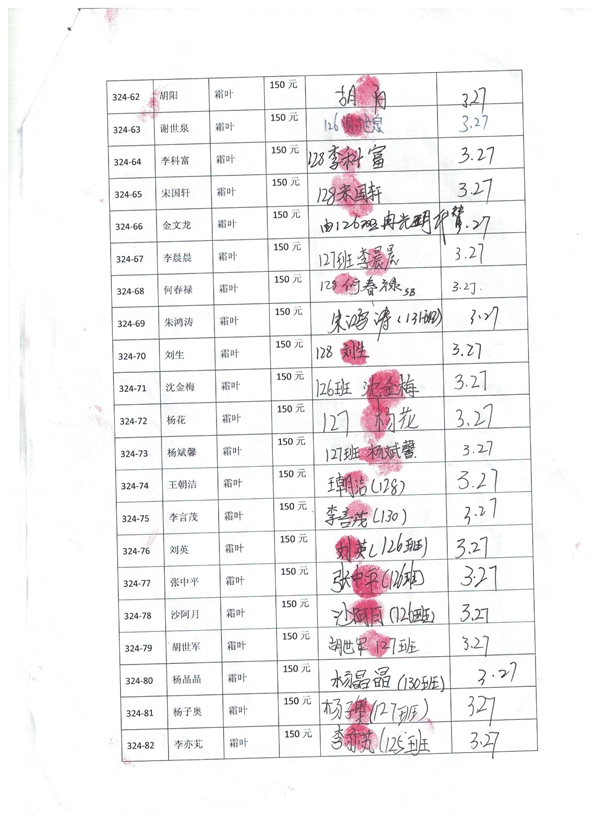 324-62 胡阳 霜叶 150元 胡阳 3.27
324-63 谢世泉 霜叶 150元 126 谢世泉 3.27
324-64 李科富 霜叶 150元 128李科富 3.27
324-65 宋国轩 霜叶 150元 128宋国轩 3.27
324-66 金文龙 霜叶 150元 由126班冉光明代 3.27
324-67 李晨晨 霜叶 150元 127班李晨晨 3.27
324-68 何春禄 霜叶 150元 128何春禄 3.27.
324-69 朱鸿涛 霜叶 150元 朱鸿涛(131班) 3.27
324-70 刘生 霜叶 150元 128 刘生 3.27
324-71 沈金梅 霜叶 150元 126班 沈金梅 3.27
324-72 杨花 霜叶 150元 127 杨花 3.27
324-73 杨斌馨 霜叶 150元 127班 杨斌馨 3.27
324-74 王朝洁 霜叶 150元 王朝洁(128) 3.27
324-75 李言茂 霜叶 150元 李言茂(130) 3.27
324-76 刘英 霜叶 150元 刘英(126班) 3.27
324-77 张中平 霜叶 150元 张中平(126班) 3.27
324-78 沙阿月 霜叶 150元 沙阿月(126班) 3.27
324-79 胡世军 霜叶 150元 胡世军 127班 3.27
324-80 杨晶晶 霜叶 150元 杨晶晶(130班) 3.27
324-81 杨子奥 霜叶 150元 杨子奥(127班) 3.27
324-82 李亦芃 霜叶 150元 李亦芃(125班 3.27